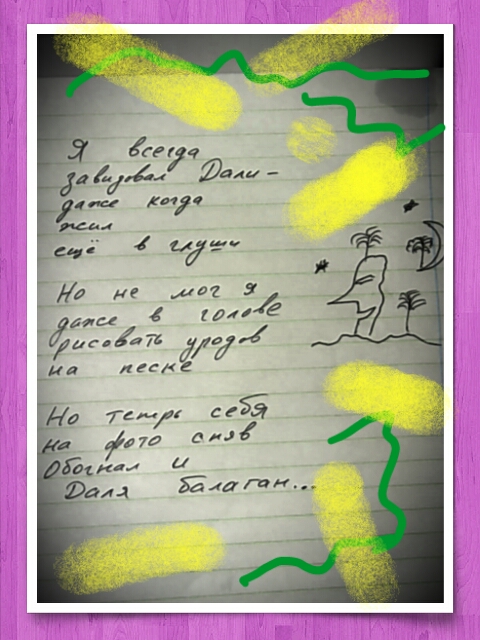 Я всегда
завидовал Дали-
даже когда
жил
ещё в глуши
Но не мог я
даже в голове
рисовать уродов
на песке
Но тетрь себя
на фото сняв
Обогнал и
Даля балаган...